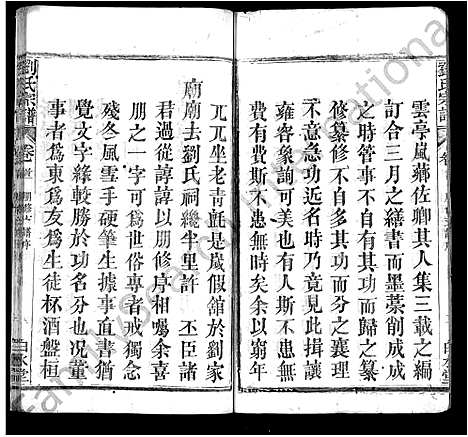 雲亭嵐藜佐卿其人集三載之編
訂合三月之繕書而墨棻削成成
之時管事不以其功而歸之纂
修纂修不自多其功而分之襄理
有斯急功近名時乃竟見此揖讓
雍容象詢可美也有人斯不患無
人有斯費不患無費矣余以窮年
兀兀坐老青氈是歲假舘於劉家
廟廟去劉氏祠纔半里許 丕臣諸
君過從諄諄以牂序相囑余喜
朋之一言可為世俗專者戒獨念
殘冬風雪手硬筆生據事直書猶
覺文字緣較勝於功名分也况董
事者為東為友生徒杯酒盤桓
劉氏宗譜
卷
白水堂